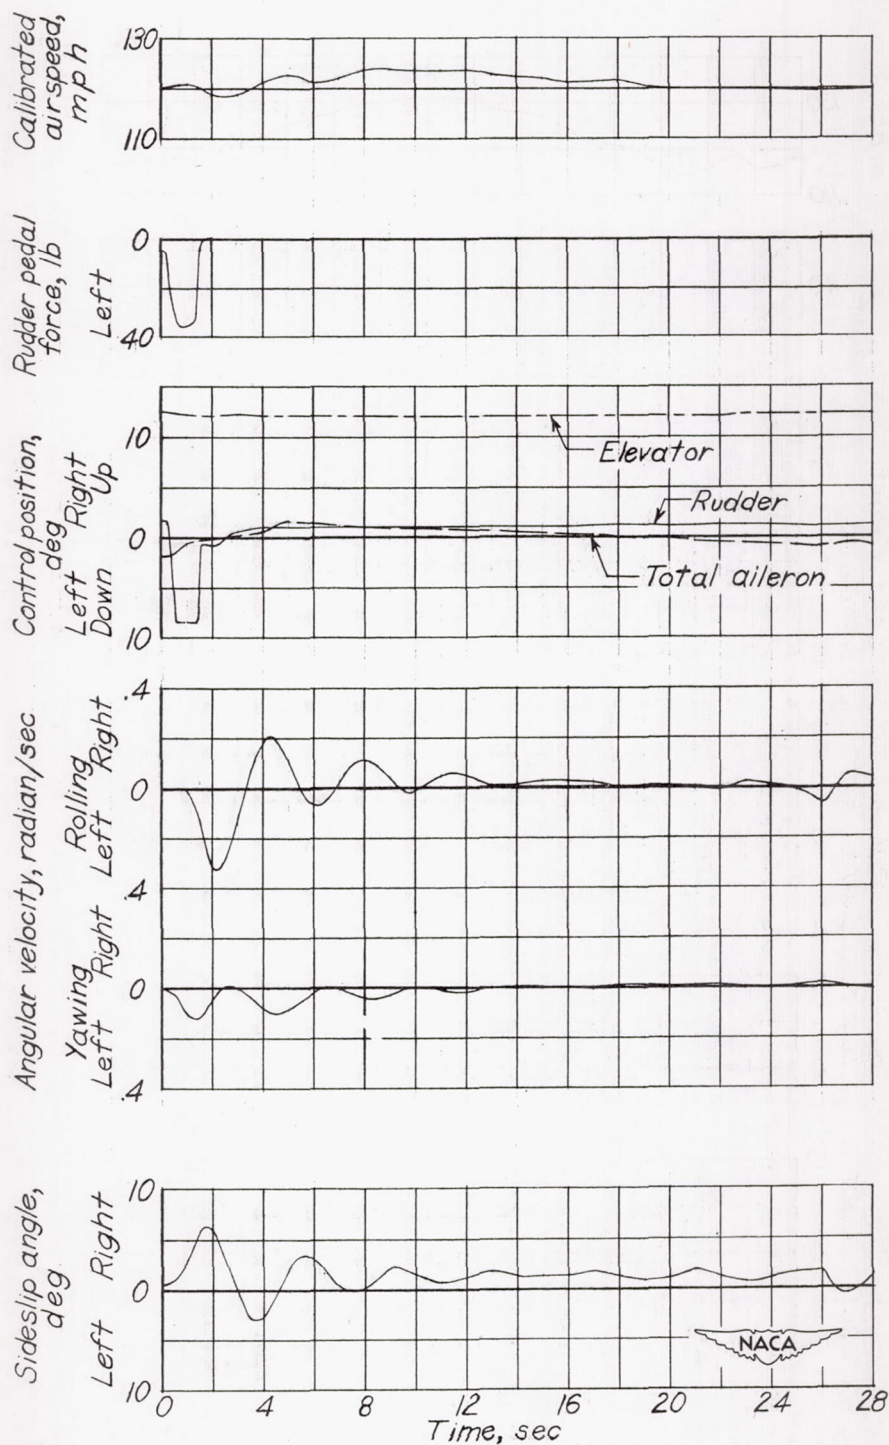 Calibrated
airspeed,
mph
130
110
Rudder pedal
force, lb
Left
0
40
Control position,
deg
Left Right
Down Up
10
0
10
Elevator
Rudder
Total aileron
Angular velocity, radian/sec
Rolling
Left Right
.4
0
.4
Yawing
Left Right
0
.4
Sideslip angle,
deg
Left Right
10
0
10
NACA
0 4 8 12 16 20 24 28
Time, sec